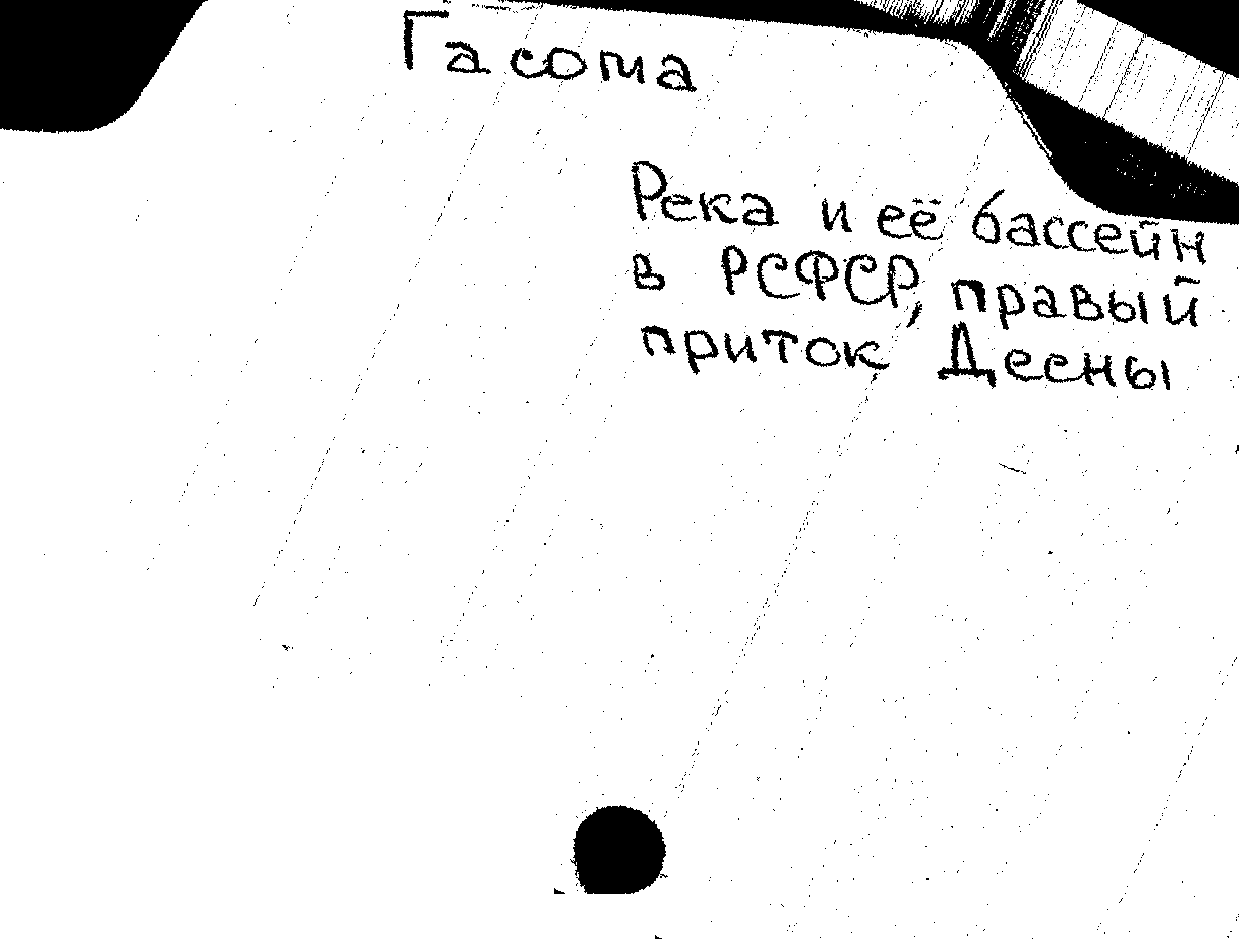 Гасома
Река и её бассейн
в РСФСР, правый
приток Десны